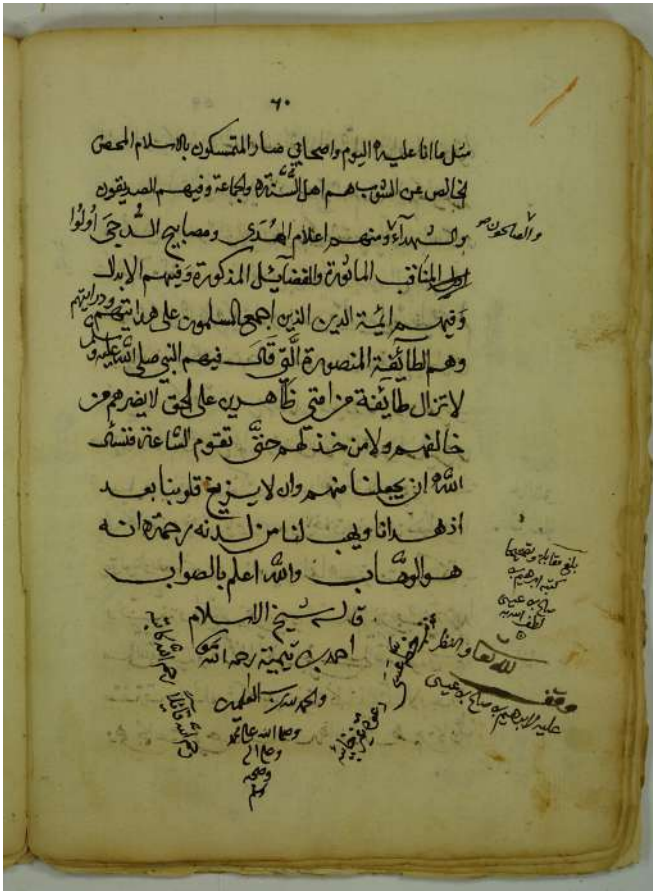 ٦٠
مثل ما انا عليه اليوم واصحابي صار المتمسكون بالاسلام المحض
الخالص عن الشوب هم اهل السنة والجماعة وفيهم الصديقون
والشهداء ومنهم اعلام الهدى ومصابيح الدجى أولوا
والصالحون
المناقب الماثورة والفضايل المذكورة وفيهم الابدال
وفيهم ائمة الدين الذين اجمع المسلمون على هدايتهم ودرايتهم
وهم الطايفة المنصورة التي قال فيهم النبي صلى الله عليه وسلم
لا تزال طايفة من امتي ظاهرين على الحق لا يضرهم من
خالفهم ولا من خذلهم حتى تقوم الساعة فنسئل
الله ان يجعلنا منهم وان لا يزيغ قلوبنا بعد
اذ هدانا ويهب لنا من لدنه رحمة انه
هو الوهاب والله اعلم بالصواب
قاله شيخ الاسلام
احمد بن تيمية رحمه الله
والحمد لله رب العلمين
وصلى الله على محمد
وعلى آله
وصحبه
وسلم
رحم الله كاتبه
رحم الله قائلا
بلغ مقابلة وتصحيحا
كتبه ابراهيم بن
صالح بن عيسى
لطف الله به
وقف لله تعالى والنظر
عليه لابراهيم بن صالح بن عيسى